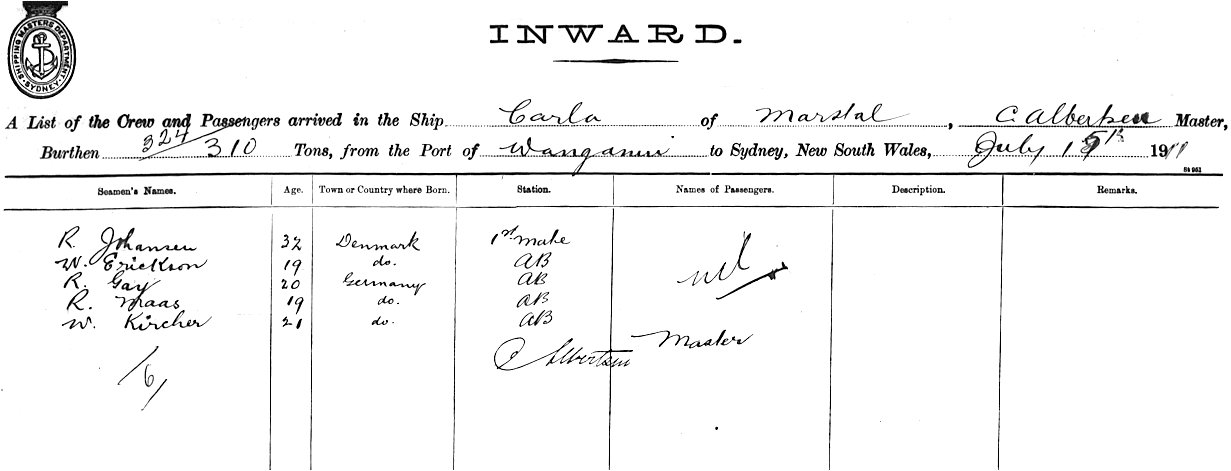 SHIPPING MASTERS DEPARTMENT
SYDNEY
INWARD.
A List of the Crew and Passengers arrived in the Ship Carla of Marstal, C. Albertsen Master,
Burthen 324/310 Tons, from the Port of Wanganui to Sydney, New South Wales, July 15th 1911
St 961
Seamen's Names. Age. Town or Country where Born. Station. Names of Passengers. Description. Remarks.
R. Johansen 32 Denmark 1st Mate
W. Erickson 19 do. AB nil
R. Gay 20 Germany AB
R. Maas 19 do. AB
W. Kircher 21 do. AB
C Albertsen Master
/6/